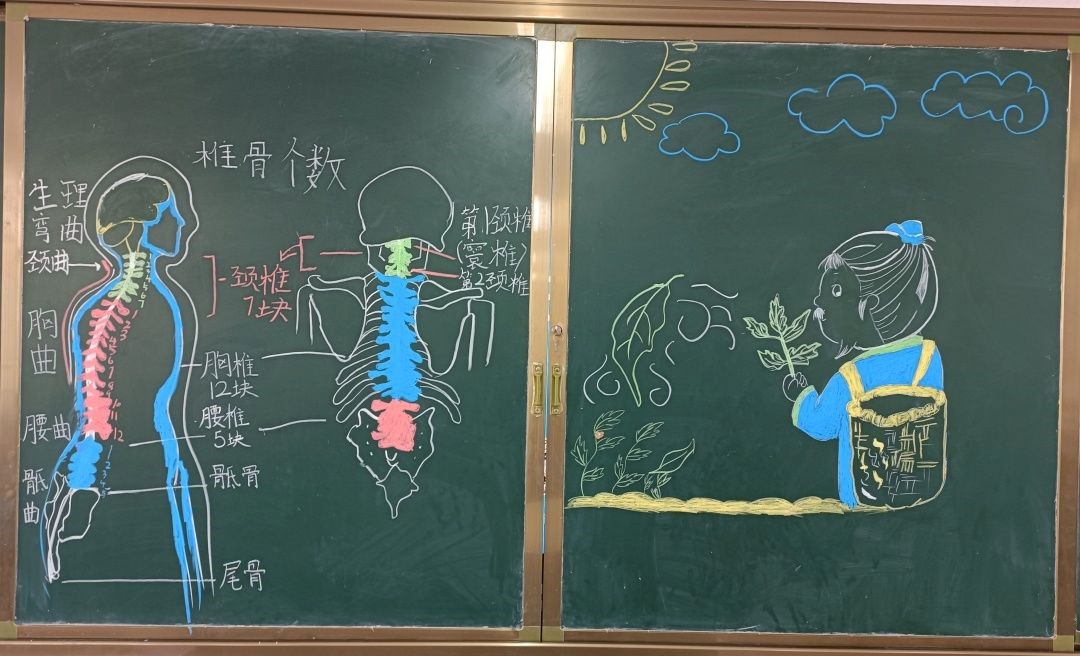 椎骨个数
生理
弯曲
颈曲
胸
曲
腰曲
骶
曲
颈椎
7块
胸椎
12块
腰椎
5块
骶骨
尾骨
第1颈椎
(寰椎)
第2颈椎